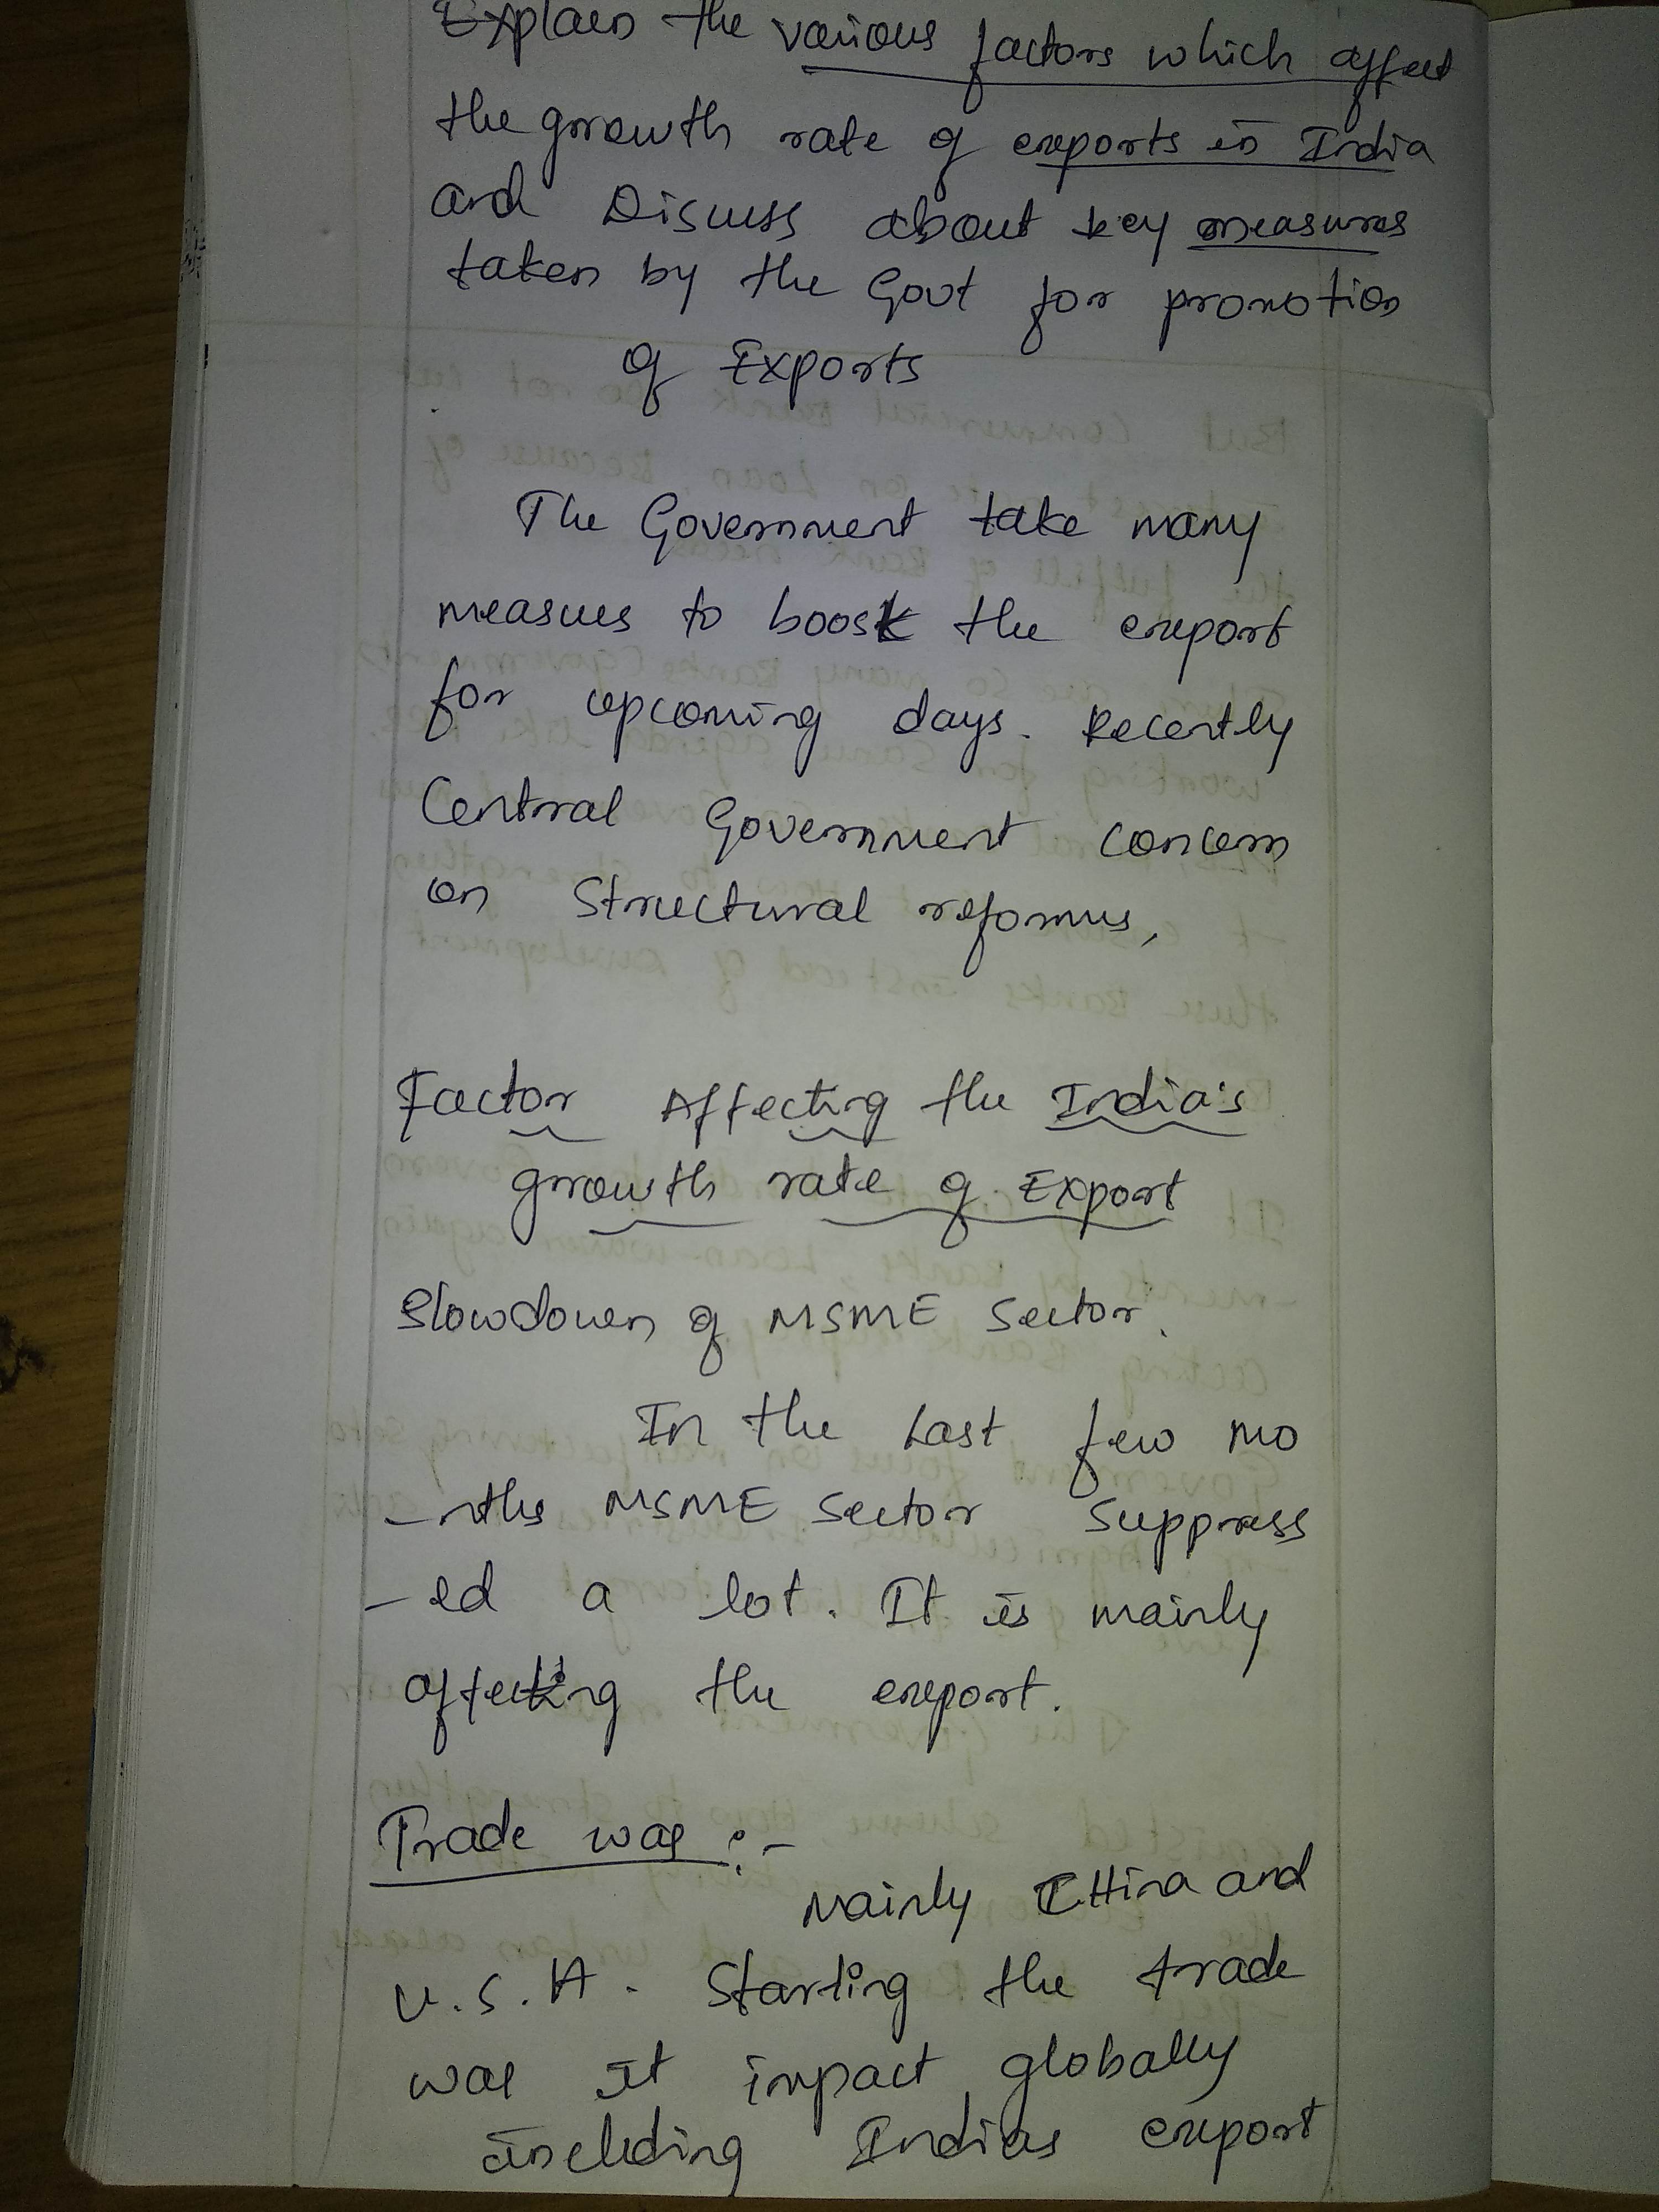 Explain the various factors which affect
the growth rate of exports in India
and Discuss about key measures
taken by the Govt for promotion
of Exports
The Government take many
measues to boost the export
for upcoming days. Recently
Central Government concern
on Structural reforms,
Factor Affecting the India's
growth rate of Export
Slowdown of MSME Sector.
In the Last few mo
-nths MSME Sector Suppress
-ed a lot. It is mainly
affecting the export.
Trade war :-
Mainly CHina and
U.S.A. Starting the trade
war It impact globally
including Indias export